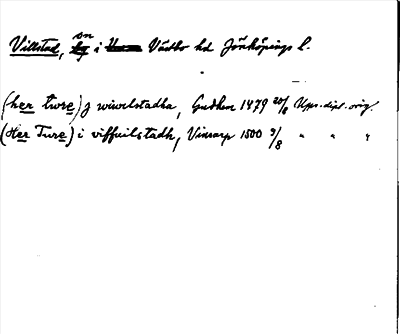 Villstad, sn i Västbo hd Jönköpings l.
(her twre) j wiwelstadha, Gudhem 1479 20/8 Ups. dipl. orig.
(Her Ture) i viffuilstadh, Vinsarp 1500 9/8 " " "